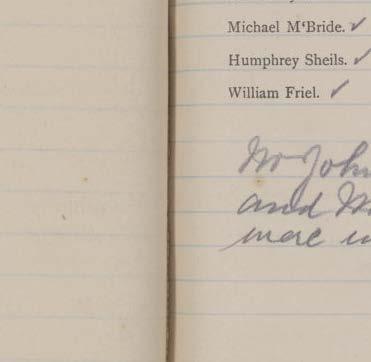 Michael M‘Bride. ✓
Humphrey Sheils. ✓
William Friel. ✓
Mr John
and M
were in